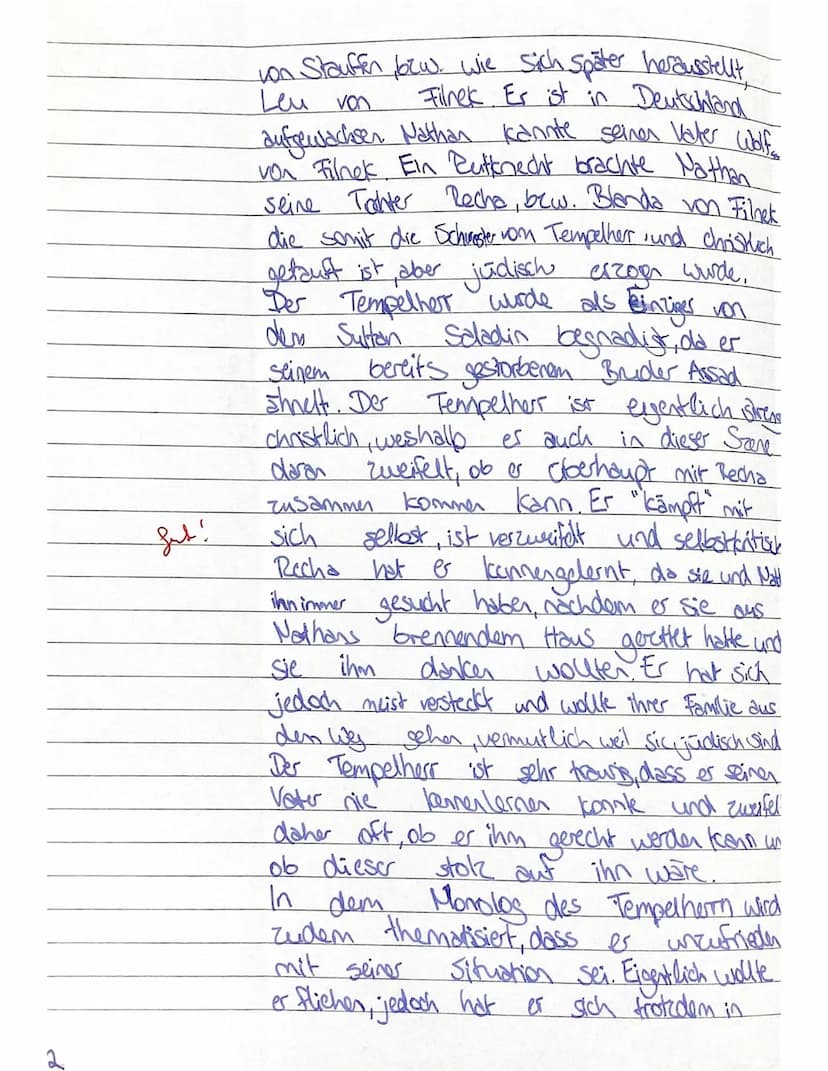 von Stauffn, bzw. wie sich später herausstellt,
Leu von Filnek. Er ist in Deutschland
aufgewachsen. Nathan kannte seinen Vater Wolf
von Filnek. Ein Reitknecht brachte Nathan
seine Tochter Recha, bzw. Blanda von Filnek
die somit die Schwester vom Tempelherr, und christlich
getauft ist, aber jüdisch erzogn wurde.
Der Tempelherr wurde als Einziger von
dem Sultan Saladin begnadigt, da er
seinem bereits gestorbenem Bruder Assad
ähnelt. Der Tempelherr ist eigentlich streng
christlich, weshalb er auch in dieser Szene
daran zweifelt, ob er überhaupt mit Recha
zusammen kommen kann. Er "kämpft" mit
gut! sich selbst, ist verzweifelt und selbstkritisch
Recha hat er kennengelernt, da sie und Nat
ihn immer gesucht haben, nachdem er sie aus
Nathans brennendem Haus gerettet hatte und
sie ihm danken wollten. Er hat sich
jedoch meist versteckt und wollte ihrer Familie aus
dem Weg gehen, vermutlich weil sie jüdisch sind
Der Tempelherr ist sehr traurig, dass er seinen
Vater nie kennenlernen konnte und zweifel
daher oft, ob er ihm gerecht werden kann un
ob dieser stolz auf ihn wäre.
In dem Monolog des Tempelherrn wird
zudem thematisiert, dass er unzufrieden
mit seiner Situation sei. Eigentlich wollte
er fliehen, jedoch hat er sich trotzdem in
2